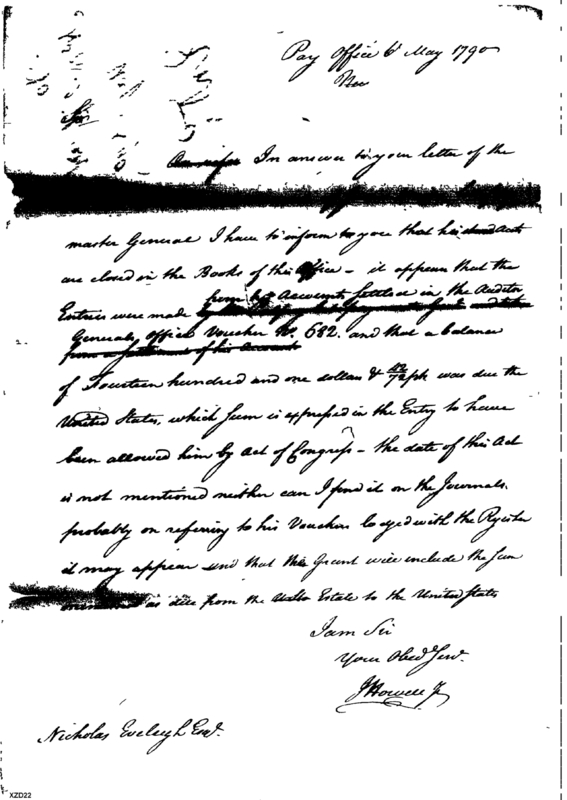 Pay Office 6th May 1790
Sir
In answer to your letter of the
master General I have to inform to you that his Accts
are closed in the Books of this Office – it appears that the
from his Accounts settled in the Auditor
Entries were made
Generals Office Voucher No. 682. and that a balance
of Fourteen hundred and one dollars & /72 was due the
United States, which Sum is expressed in the Entry to have
been allowed him by Act of Congress – the date of this Act
is not mentioned neither can I find it on the Journals.
probably on referring to his Vouchers lodged with the Register
it may appear and that this Grant will include the Sum
as due from the Estate to the United States
I am Sir
Your Obed Serv.
J Howell Jr
Nicholas Eveleigh Esqr.
XZD22